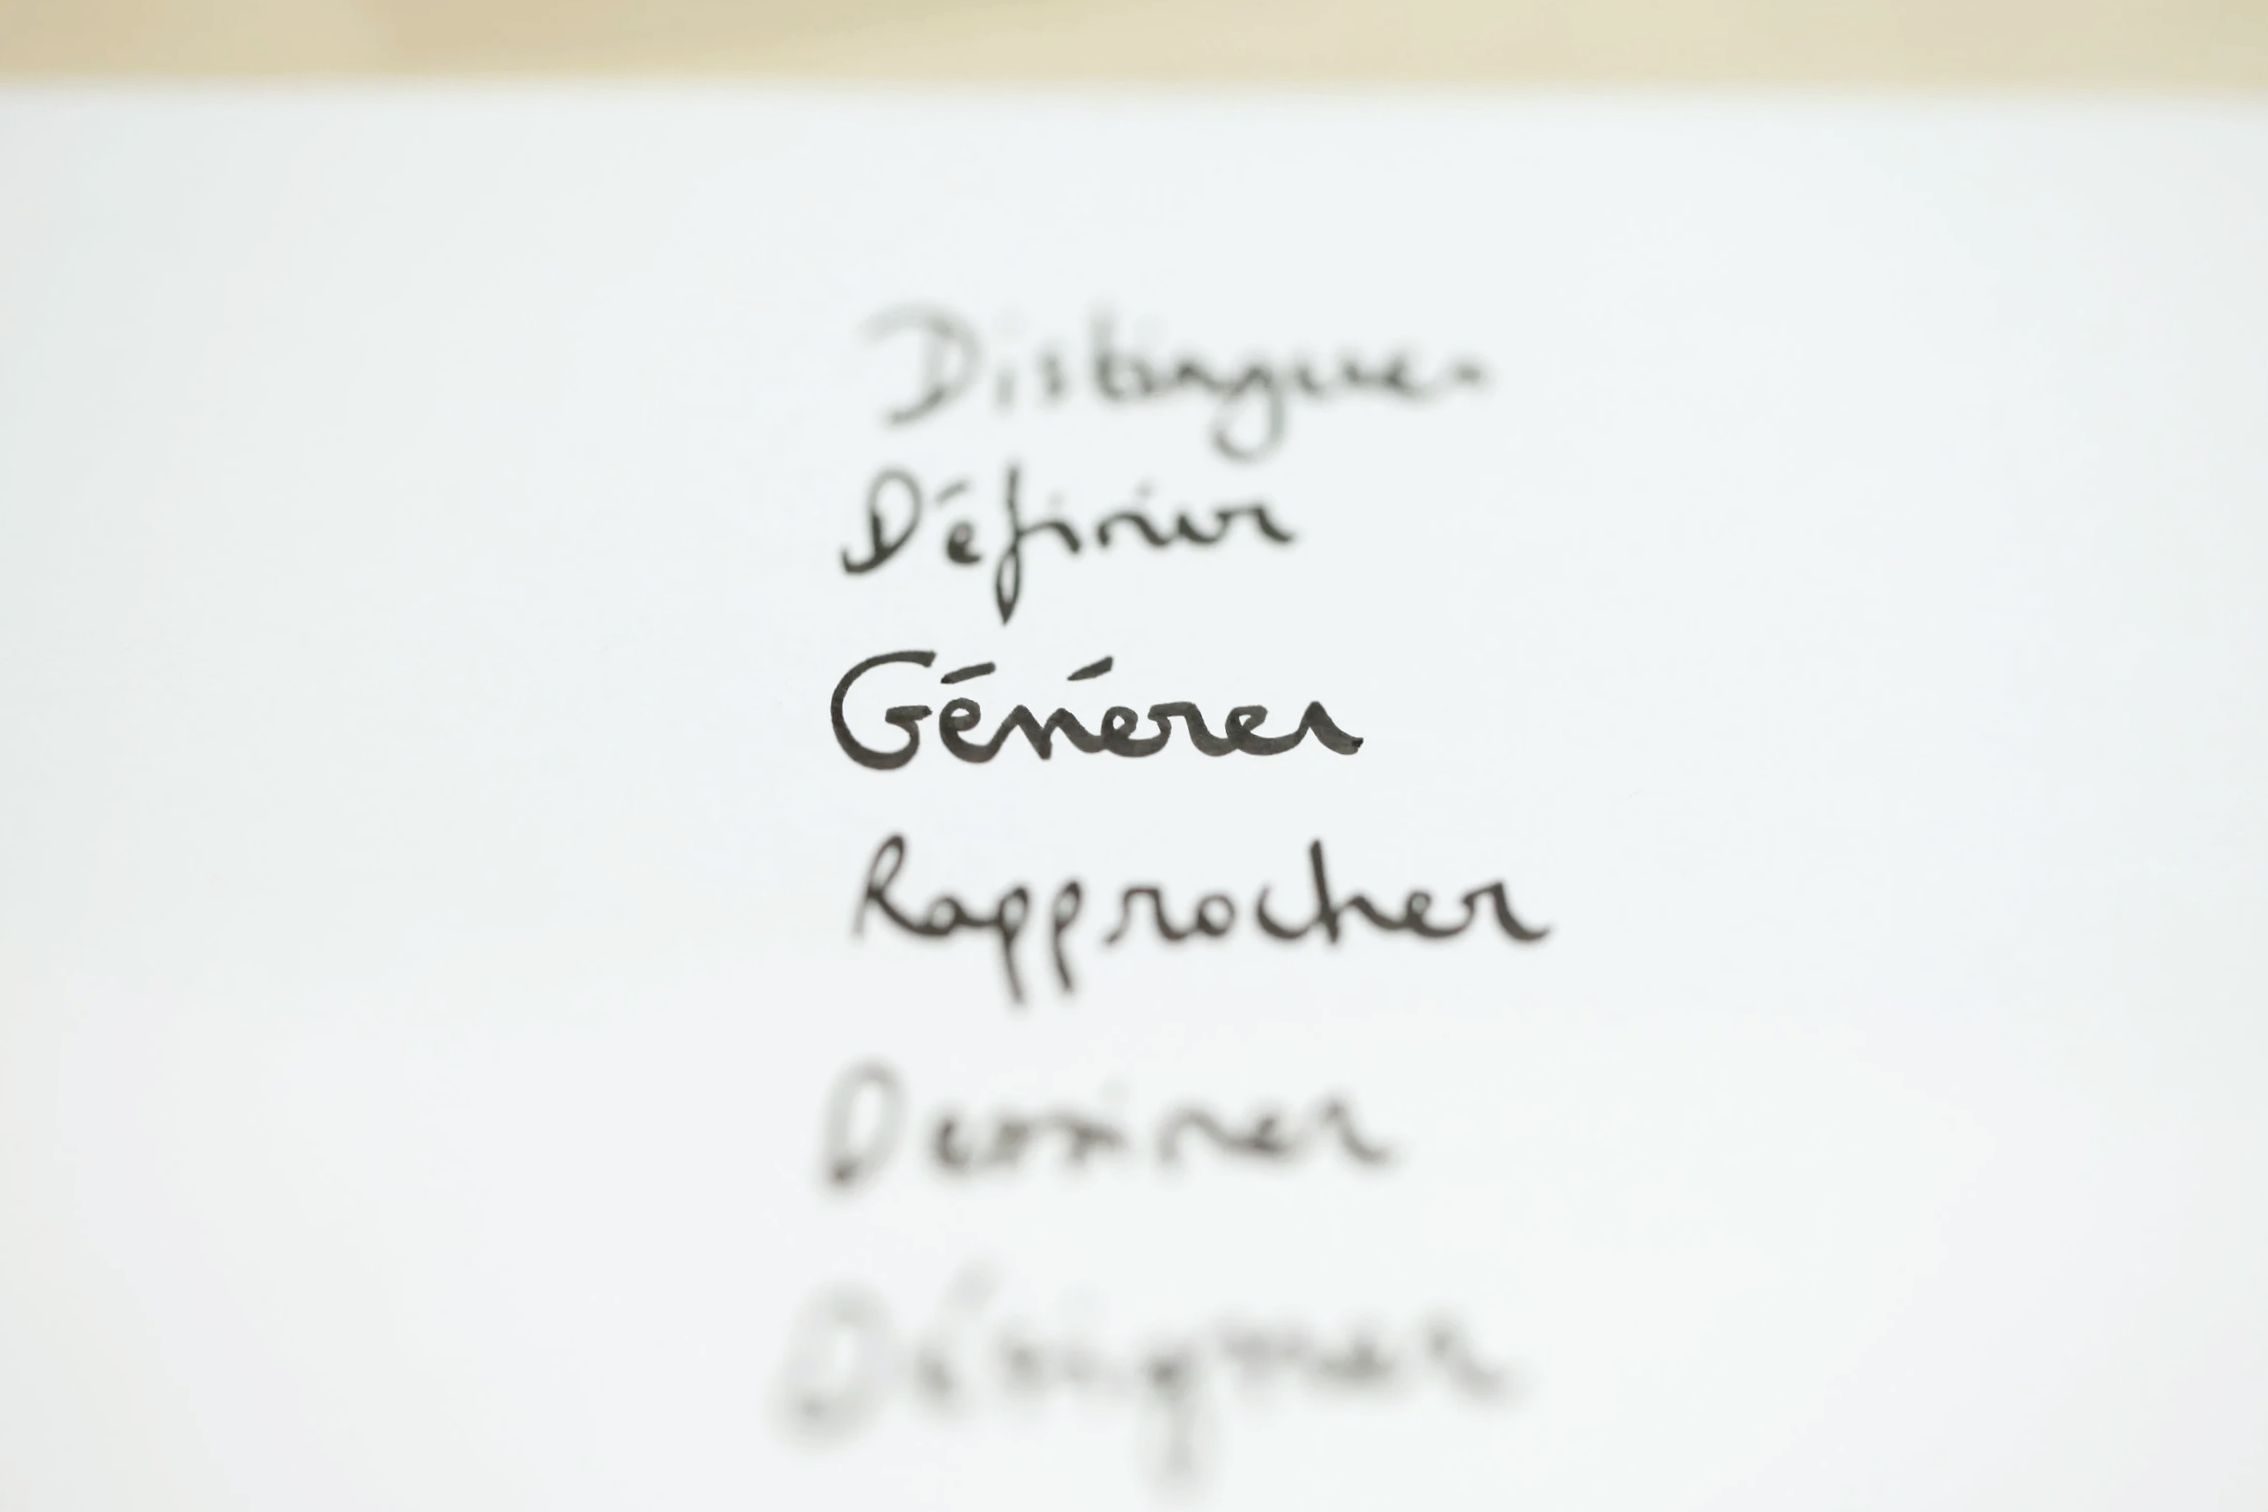 Distinguer
Définir
Générer
Rapprocher
Dessiner
Désigner